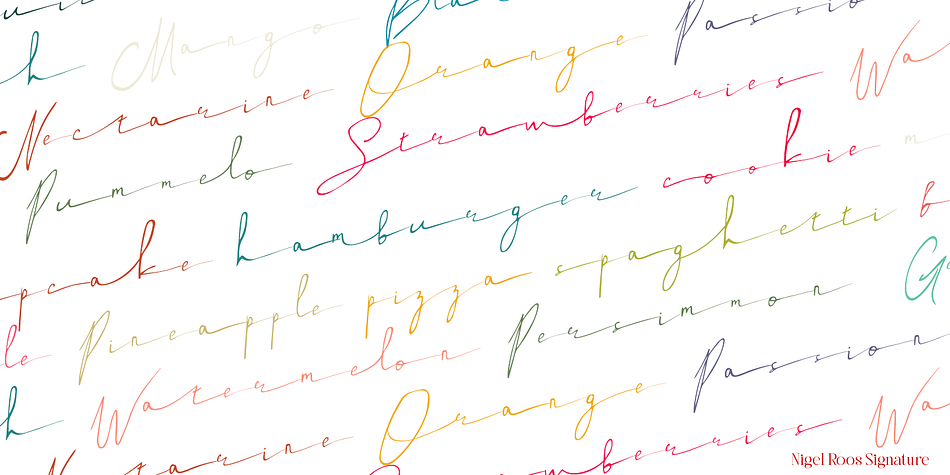 Mango Orange Passio
Nectarine Strawberries Wa
Pummelo hamburger cookie
pcake pizza spaghetti
le Pineapple Persimmon
Watermelon Orange Passion
Strawberries Wa
Nigel Roos Signature